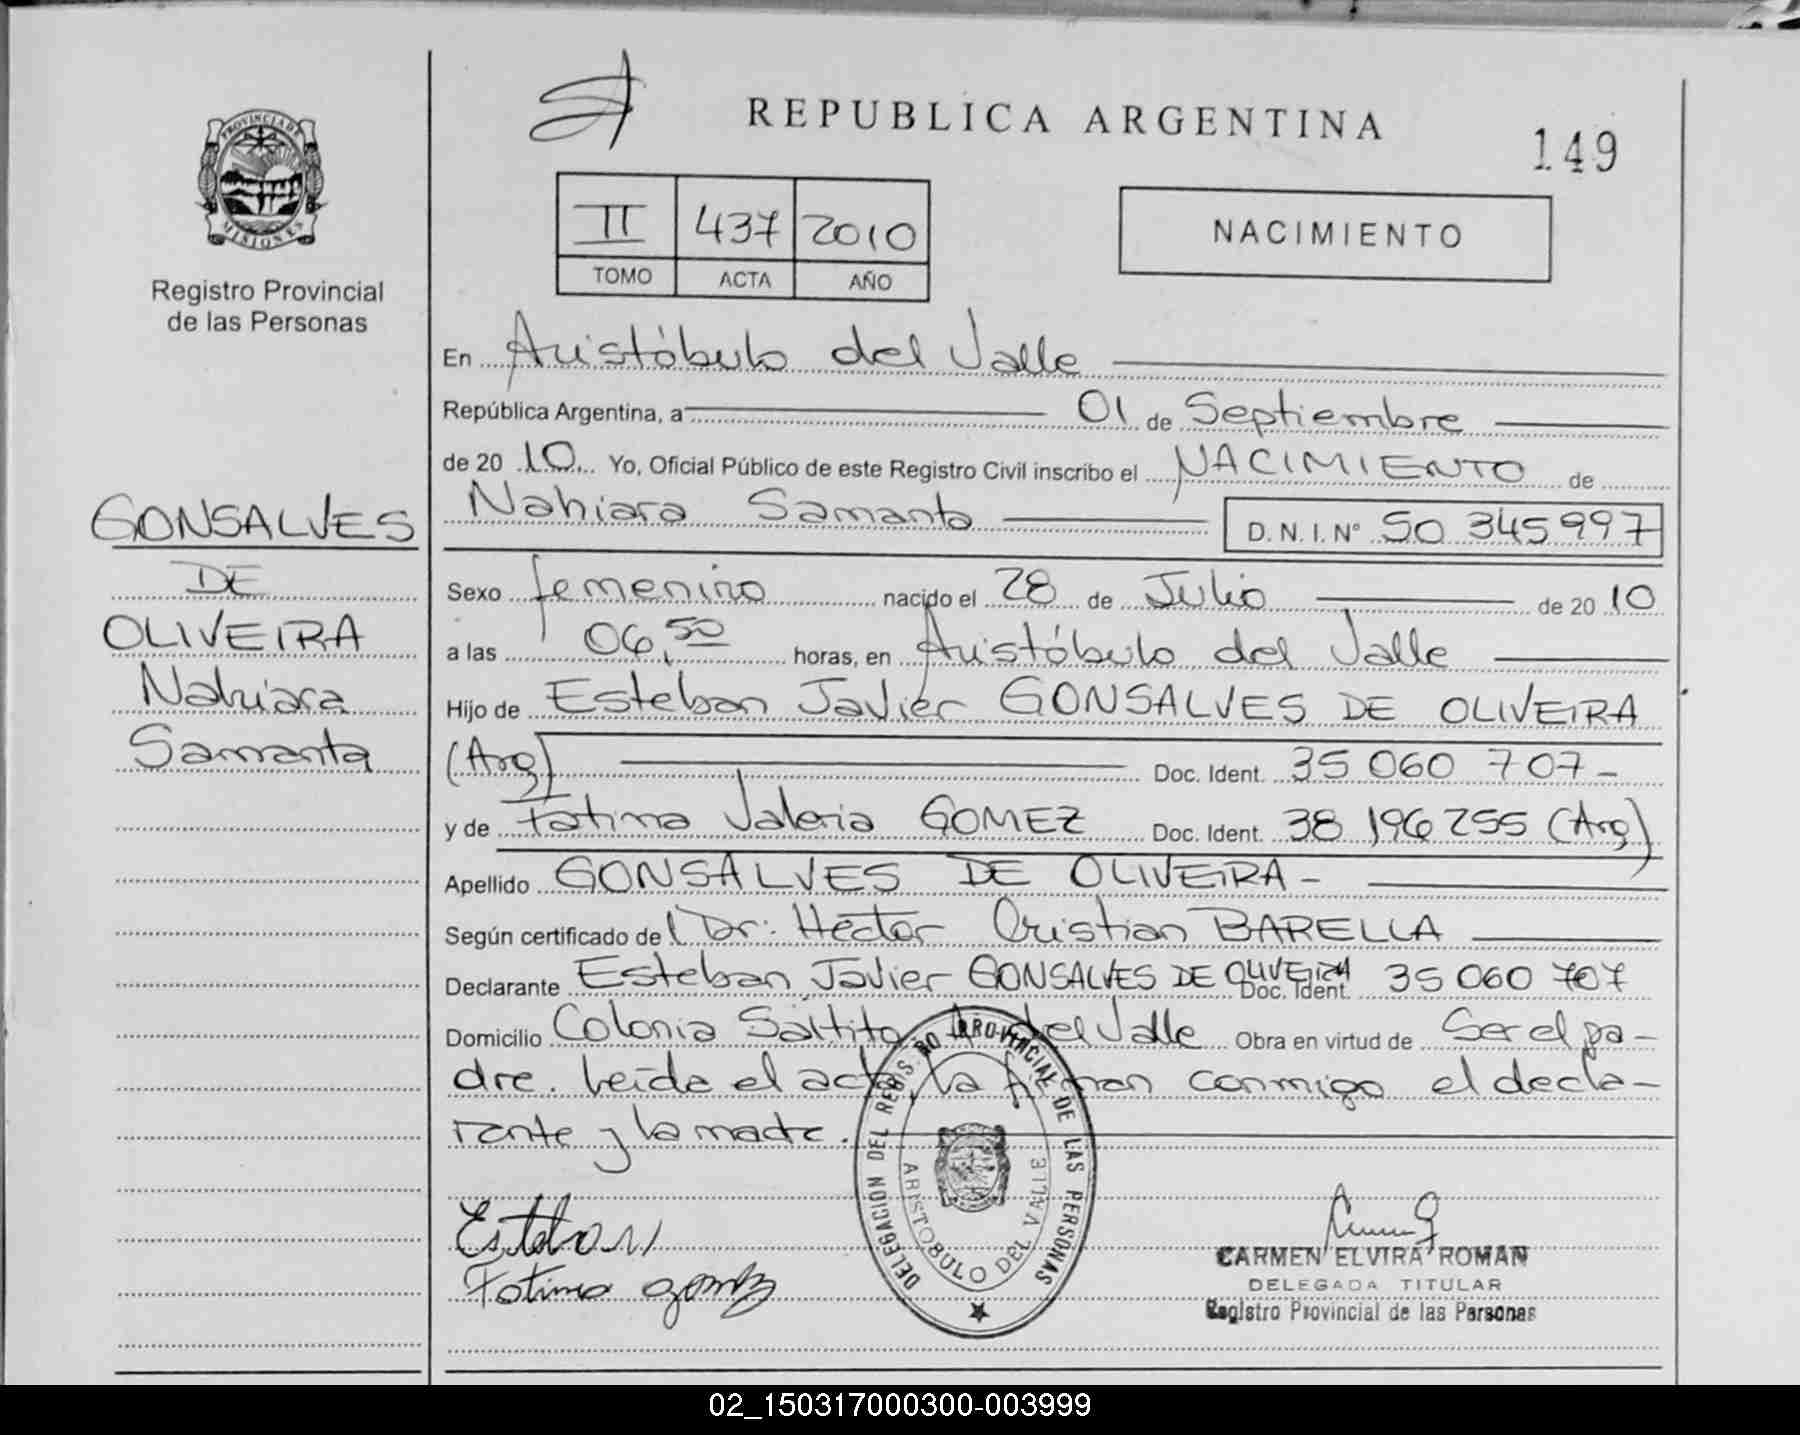 REPUBLICA ARGENTINA
149
PROVINCIA DE MISIONES
Registro Provincial
de las Personas
II 437 2010
TOMO ACTA AÑO
NACIMIENTO
En Aristóbulo del Valle
República Argentina, a 01 de Septiembre
de 2010 Yo, Oficial Público de este Registro Civil inscribo el NACIMIENTO de
Nahiara Samanta D.N.I.Nº 50 345 997
Sexo femenino nacido el 28 de Julio de 2010
a las 06,50 horas, en Aristóbulo del Valle
Hijo de Esteban Javier GONSALVES DE OLIVEIRA
(Arg) Doc. Ident. 35 060 707-
y de Fatima Valeria GOMEZ Doc. Ident. 38 196 255 (Arg)
Apellido GONSALVES DE OLIVEIRA-
Según certificado del Dr: Héctor Cristian BARELLA
Declarante Esteban Javier GONSALVES DE OLIVEIRA Doc. Ident. 35 060 707
Domicilio Colonia Saltito A. del Valle Obra en virtud de Ser el pa-
dre. Leída el acta, la firman conmigo el decla-
rante y la madre.
GONSALVES
DE
OLIVEIRA
Nahiara
Samanta
Esteban
Fatima gomez
DELEGACION DEL REGISTRO PROVINCIAL DE LAS PERSONAS
ARISTOBULO DEL VALLE
CARMEN ELVIRA ROMAN
DELEGADA TITULAR
Registro Provincial de las Personas
02_150317000300-003999